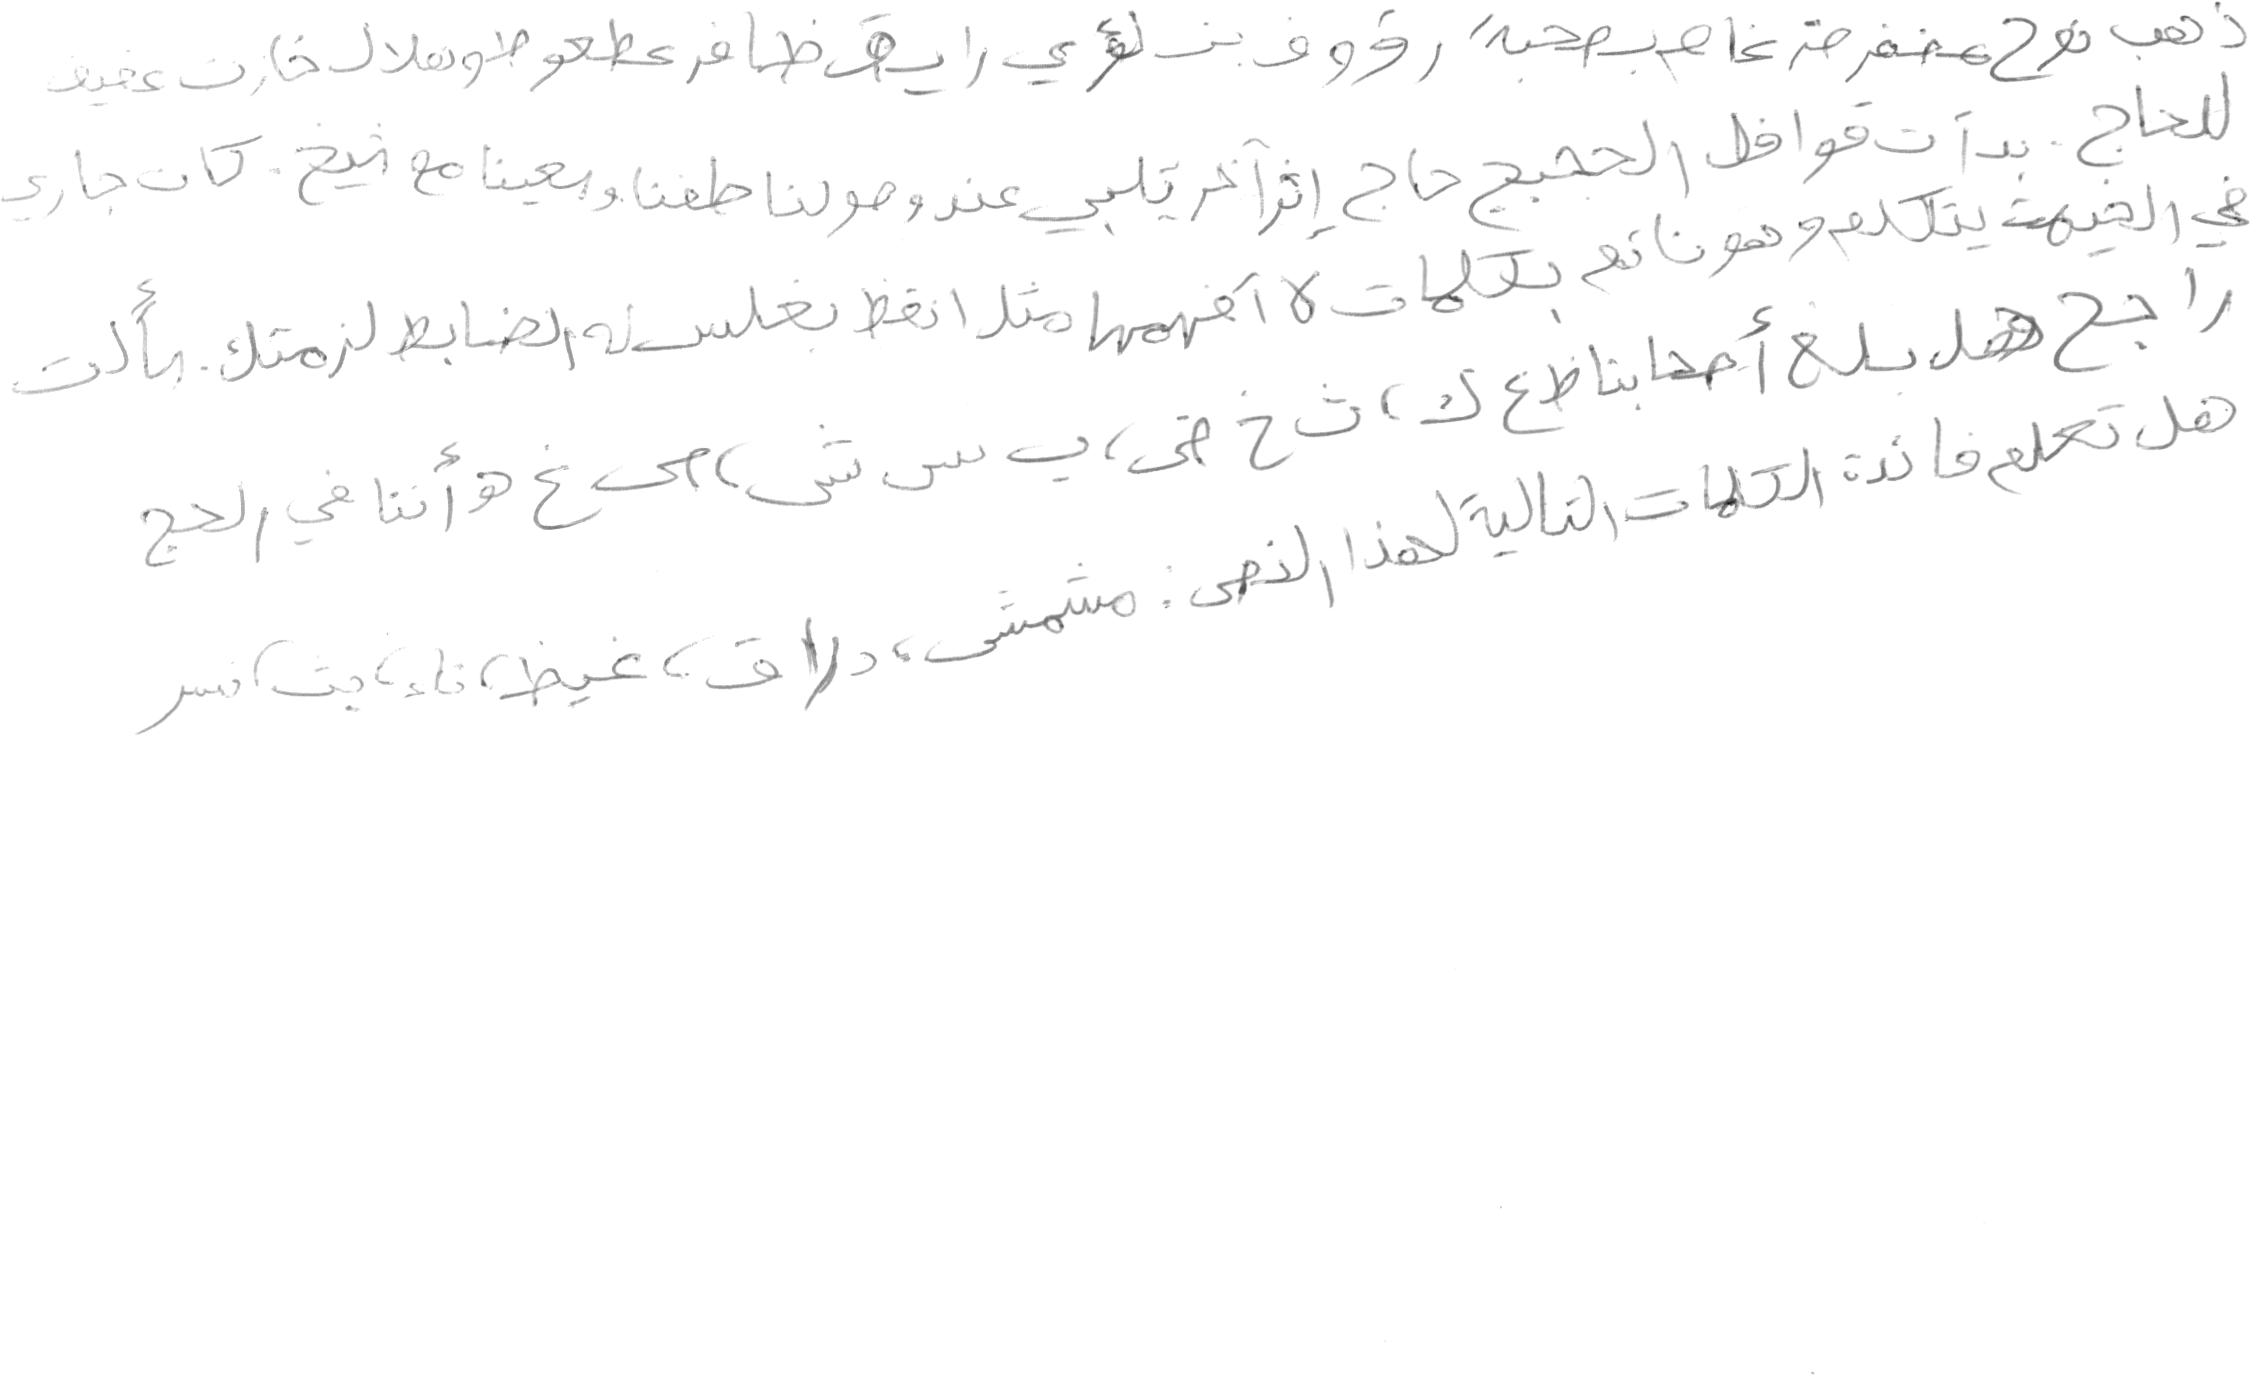 ذهب نوح غضنفر ضرغام بصحبة رؤوف بن لؤي رايق ظافر عطعوط وهلال خازن عفيف
للحاج. بدأت قوافل الحجيج حاج إثر آخر يلبي عند وصولنا طفنا وسعينا مع شيخ. كان جاري
في الخيمة يتكلم وهو نائم بكلمات لا أفهمها مثل انفظ بغلس نه الضابط لزمتك. سألت
راجح هل بلغ أصحابنا ظ ع ك، ث خ ض، ب س ش، ص غ ه أننا في الحج
هل تعلم فائدة الكلمات التالية لهذا النص: مشمش، دراق، غيظ، ناء، بث، نسر